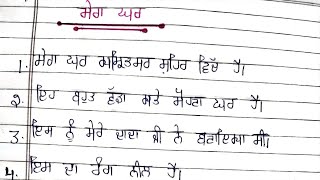 ਮੇਰਾ ਘਰ
1. ਮੇਰਾ ਘਰ ਅੰਮ੍ਰਿਤਸਰ ਸ਼ਹਿਰ ਵਿੱਚ ਹੈ।
2. ਇਹ ਬਹੁਤ ਵੱਡਾ ਅਤੇ ਸੋਹਣਾ ਘਰ ਹੈ।
3. ਇਸ ਨੂੰ ਮੇਰੇ ਦਾਦਾ ਜੀ ਨੇ ਬਣਾਇਆ ਸੀ।
4. ਇਸ ਦਾ ਰੰਗ ਨੀਲਾ ਹੈ।